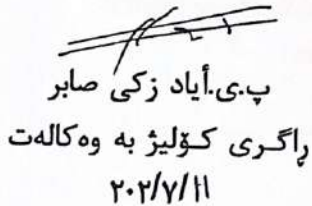 پ.ی.أیاد زکی صابر
ڕاگری کۆلیژ به وەکالەت
٢٠٢/٧/١١